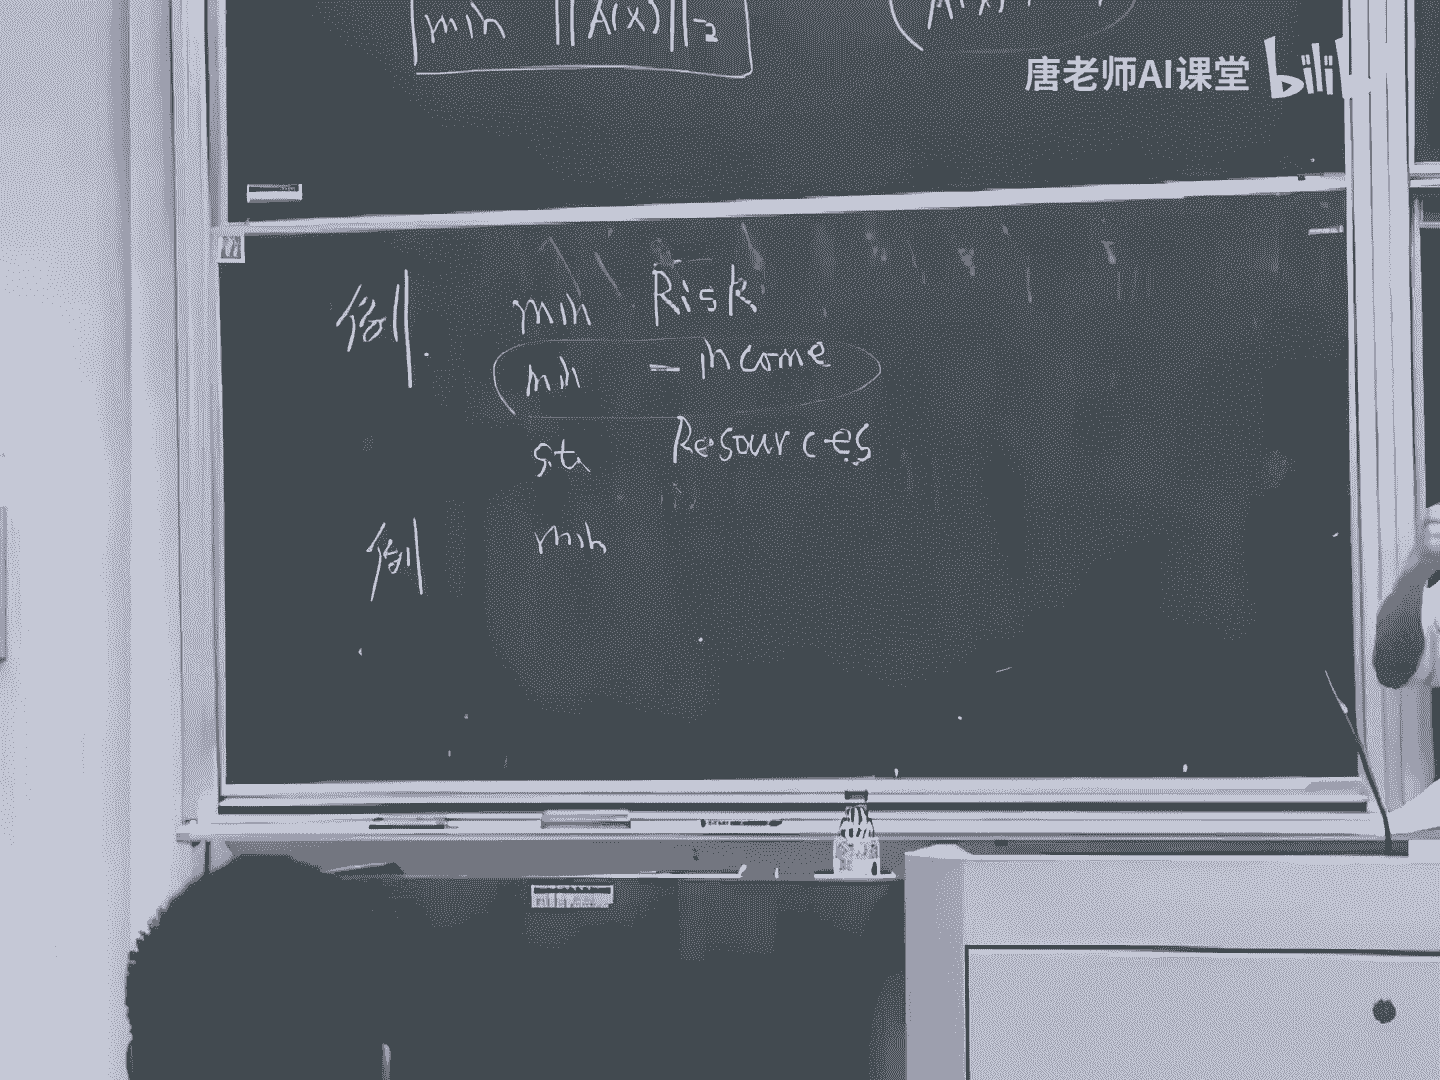 min ||A(x)||_2
唐老师AI课堂 bili
例. min Risk
min - income
st. Resources
例 min